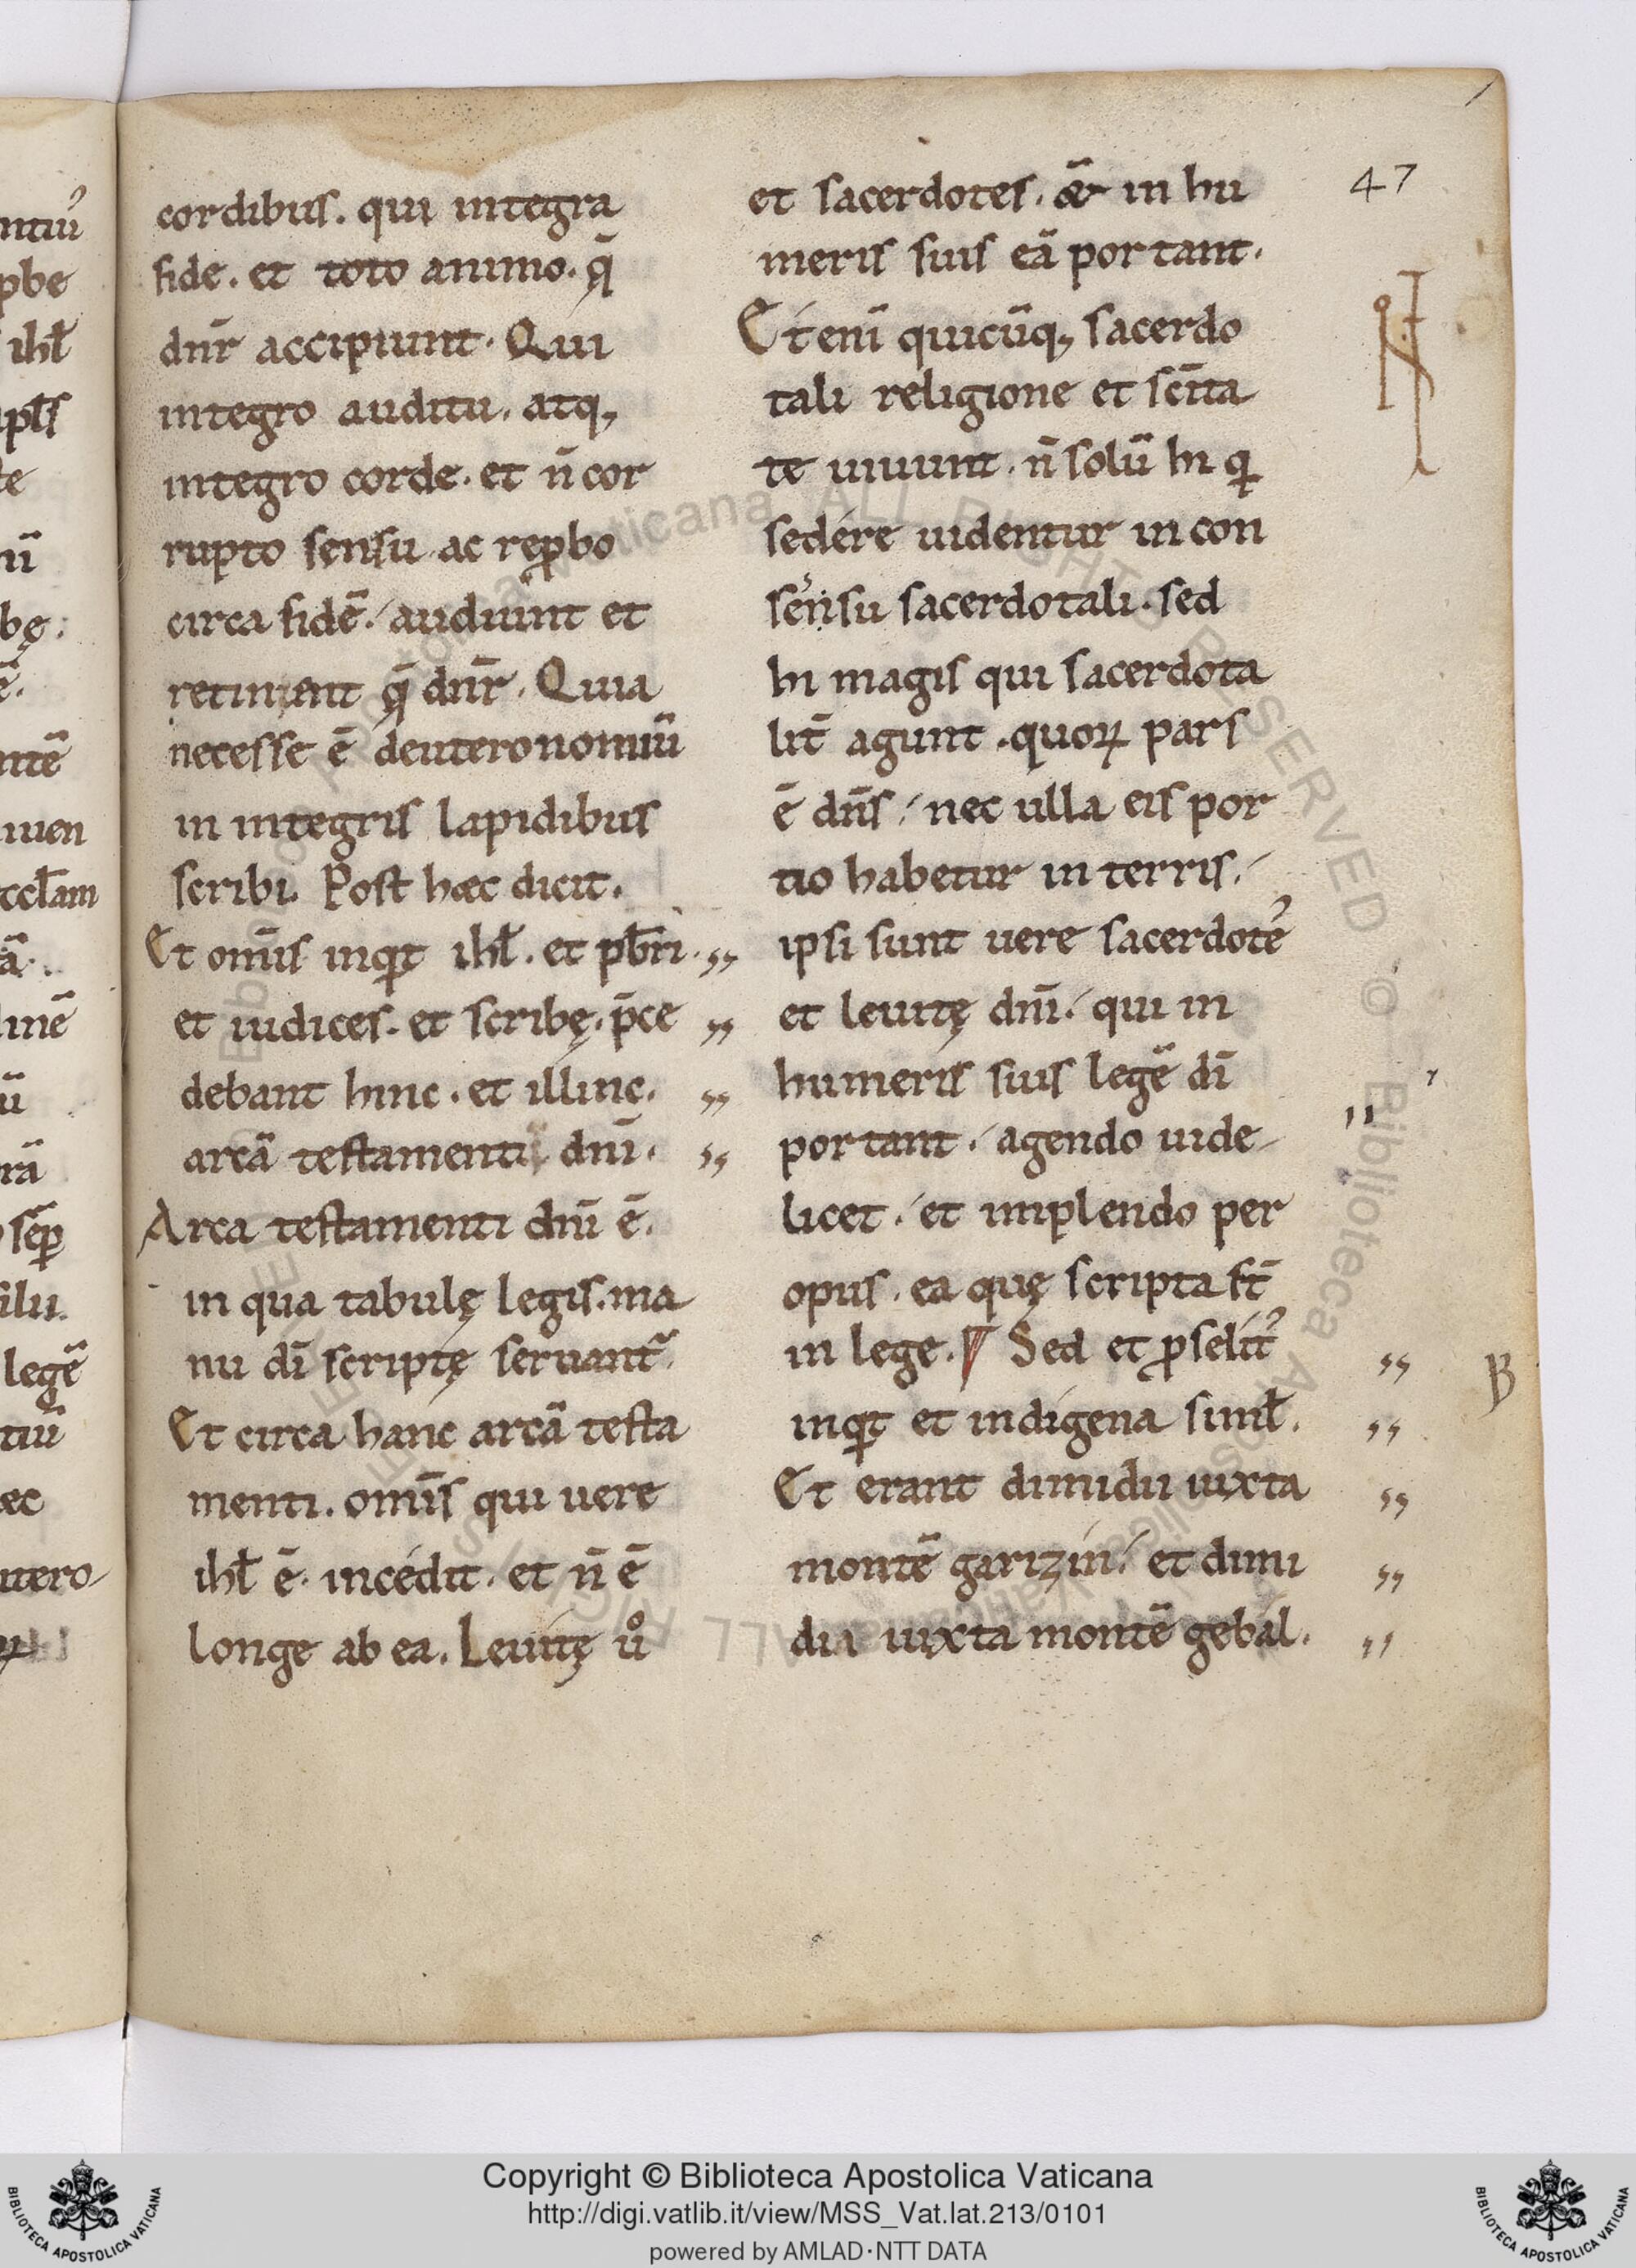 cordibus. qui integra
fide. et toto animo. q̄
dn̄r accipiunt. Qui
integro auditu. atq;
integro corde. et n̄ cor
rupto sensu ac rep̱bo
circa fidē. audiunt et
retinent q̄ dn̄r. Quia
necesse ē deuteronomiū
in integris lapidibus
scribi. Post hæc dicit.
Et om̄is inqͥt ihl̄. et pb̄ri.
et iudices. et scribę. p̄ce
debant hinc. et illinc.
arcā testamenti dn̄i.
Arca testamenti dn̄i ē.
in qua tabulę legis. ma
nu dī scriptę seruant᷑.
Et circa hanc arcā testa
menti. om̄is qui uere
ihl̄ ē. incedit. et n̄ ē
longe ab ea. Leuitę uº
et sacerdotes. &̄ in hu
meris suis eā portant.
Et enī quicūq; sacerdo
tali religione et sc̄ita
te uiuunt. n̄ solū hi qͥ
sedére uidentur in con
sensu sacerdotali. sed
hi magis qui sacerdota
lit̄ agunt. quoꝝ pars
ē dn̄s. nec ulla eis por
tio habetur in terris.
ipsi sunt uere sacerdote᾽
et leuitę dn̄i. qui in
humeris suis legē dī
portant. agendo uide
licet. et implendo per
opus. ea quę scripta st̄
in lege. ¶ Sed et ꝓselit᾽
inqͥt et indigena simil̄.
Et erant dimidii iuxta
montē garizin. et dimi
dii iuxta montē gebal.
47
B
ntiu᾽
pbe
ihl̄
ū
bę:
ntē
iuen
ccl̄am
ā.
inē
ū
rā
sēp̱
ilu.
legē
tiū
ec
utero
Copyright © Biblioteca Apostolica Vaticana
http://digi.vatlib.it/view/MSS_Vat.lat.213/0101
powered by AMLAD·NTT DATA
BIBLIOTECA APOSTOLICA VATICANA
BIBLIOTECA APOSTOLICA VATICANA